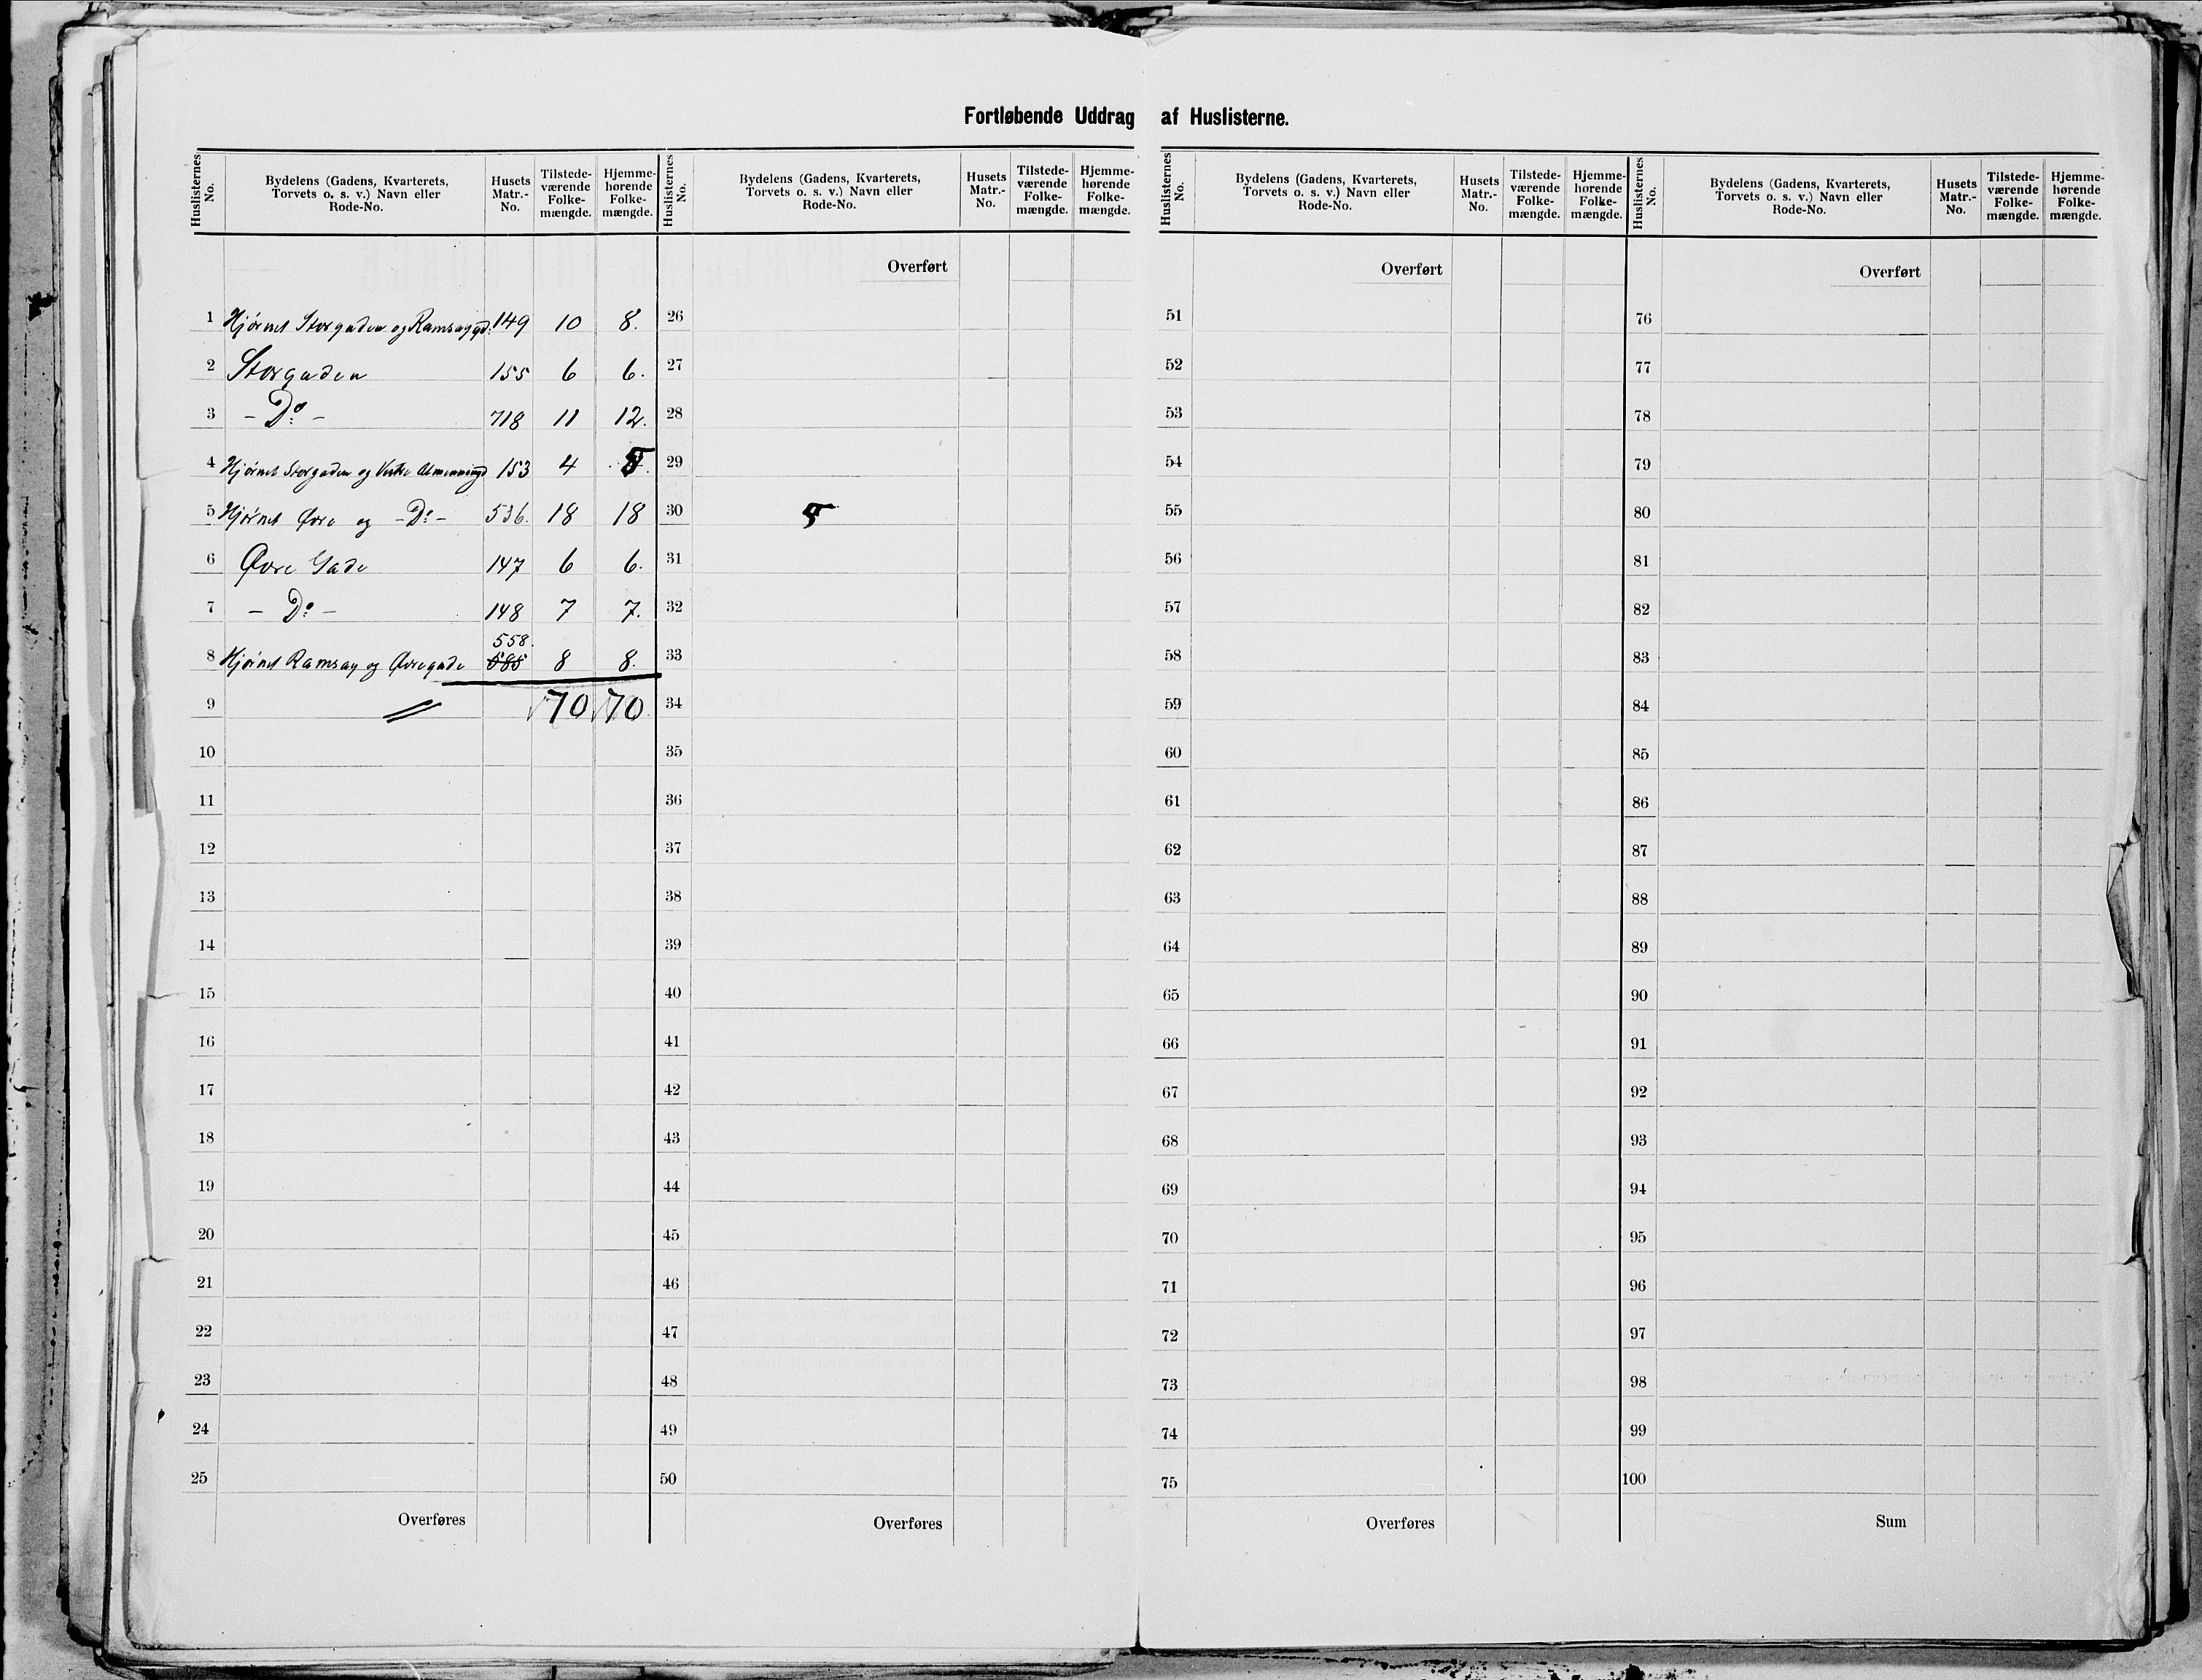 Fortløbende Uddrag af Huslisterne.
Huslisternes No. Bydelens (Gadens, Kvarterets, Torvets o. s. v.) Navn eller Rode-No. Husets Matr.-No. Tilstedeværende Folkemængde. Hjemmehørende Folkemængde.
1 Hjørnet Storgaden og Ramsaygd. 149 10 8.
2 Storgaden 155 6 6.
3 - Do - 718 11 12.
4 Hjørnet Storgaden og Vestre Almenningd 153 4 5.
5 Hjørnet Øvre og - Do - 536. 18 18
6 Øvre Gade 147 6 6.
7 - Do - 148 7 7.
558.
8 Hjørnet Ramsay og Øvregade 585 8 8.
9 70 70
10
11
12
13
14
15
16
17
18
19
20
21
22
23
24
25
Overføres
Huslisternes No. Bydelens (Gadens, Kvarterets, Torvets o. s. v.) Navn eller Rode-No. Husets Matr.-No. Tilstedeværende Folkemængde. Hjemmehørende Folkemængde.
Overført
26
27
28
29
30 5
31
32
33
34
35
36
37
38
39
40
41
42
43
44
45
46
47
48
49
50
Overføres
Huslisternes No. Bydelens (Gadens, Kvarterets, Torvets o. s. v.) Navn eller Rode-No. Husets Matr.-No. Tilstedeværende Folkemængde. Hjemmehørende Folkemængde.
Overført
51
52
53
54
55
56
57
58
59
60
61
62
63
64
65
66
67
68
69
70
71
72
73
74
75
Overføres
Huslisternes No. Bydelens (Gadens, Kvarterets, Torvets o. s. v.) Navn eller Rode-No. Husets Matr.-No. Tilstedeværende Folkemængde. Hjemmehørende Folkemængde.
Overført
76
77
78
79
80
81
82
83
84
85
86
87
88
89
90
91
92
93
94
95
96
97
98
99
100
Sum